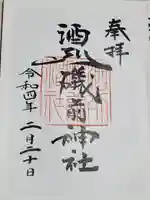 奉拝
酒列磯前神社
令和四年二月二十日